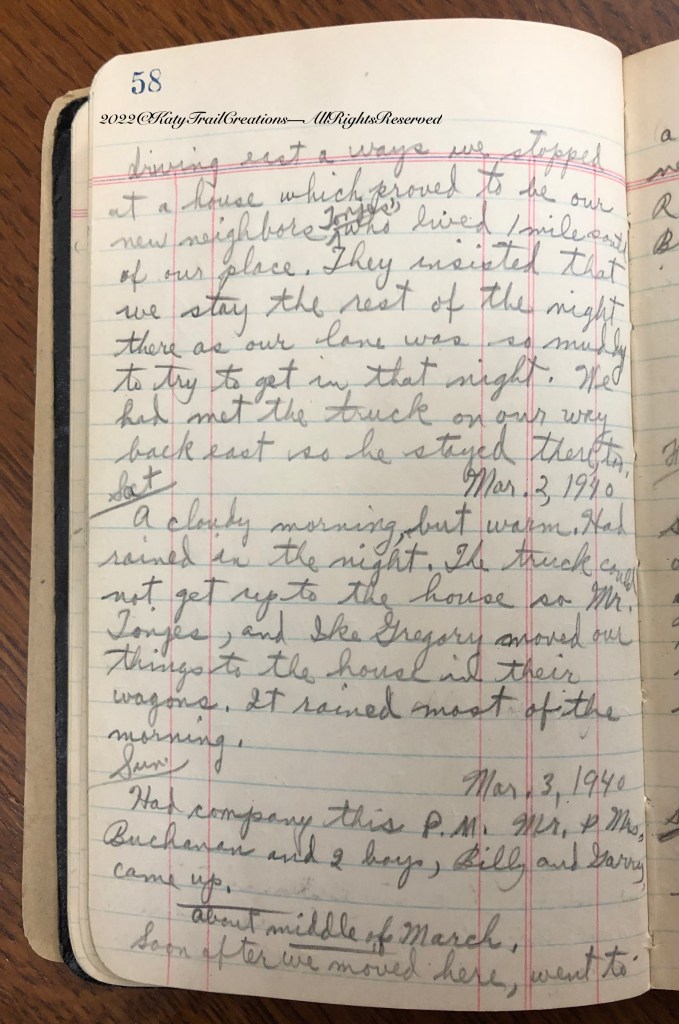 58
2022@KatyTrailCreations—AllRightsReserved
driving east a ways we stopped
at a house which proved to be our
new neighbors, Tonjes', who lived 1 mile south
of our place. They insisted that
we stay the rest of the night
there as our lane was so muddy
to try to get in that night. We
had met the truck on our way
back east so he stayed there, to.
Sat
Mar. 2, 1940
A cloudy morning, but warm. Had
rained in the night. The truck could
not get up to the house so Mr.
Tonjes, and Ike Gregory moved our
things to the house in their
wagons. It rained most of the
morning.
Sun
Mar. 3, 1940
Had company this P.M. Mr. & Mrs.
Buchanan and 2 boys, Billy and Garry,
came up.
about middle of March.
Soon after we moved here, went to